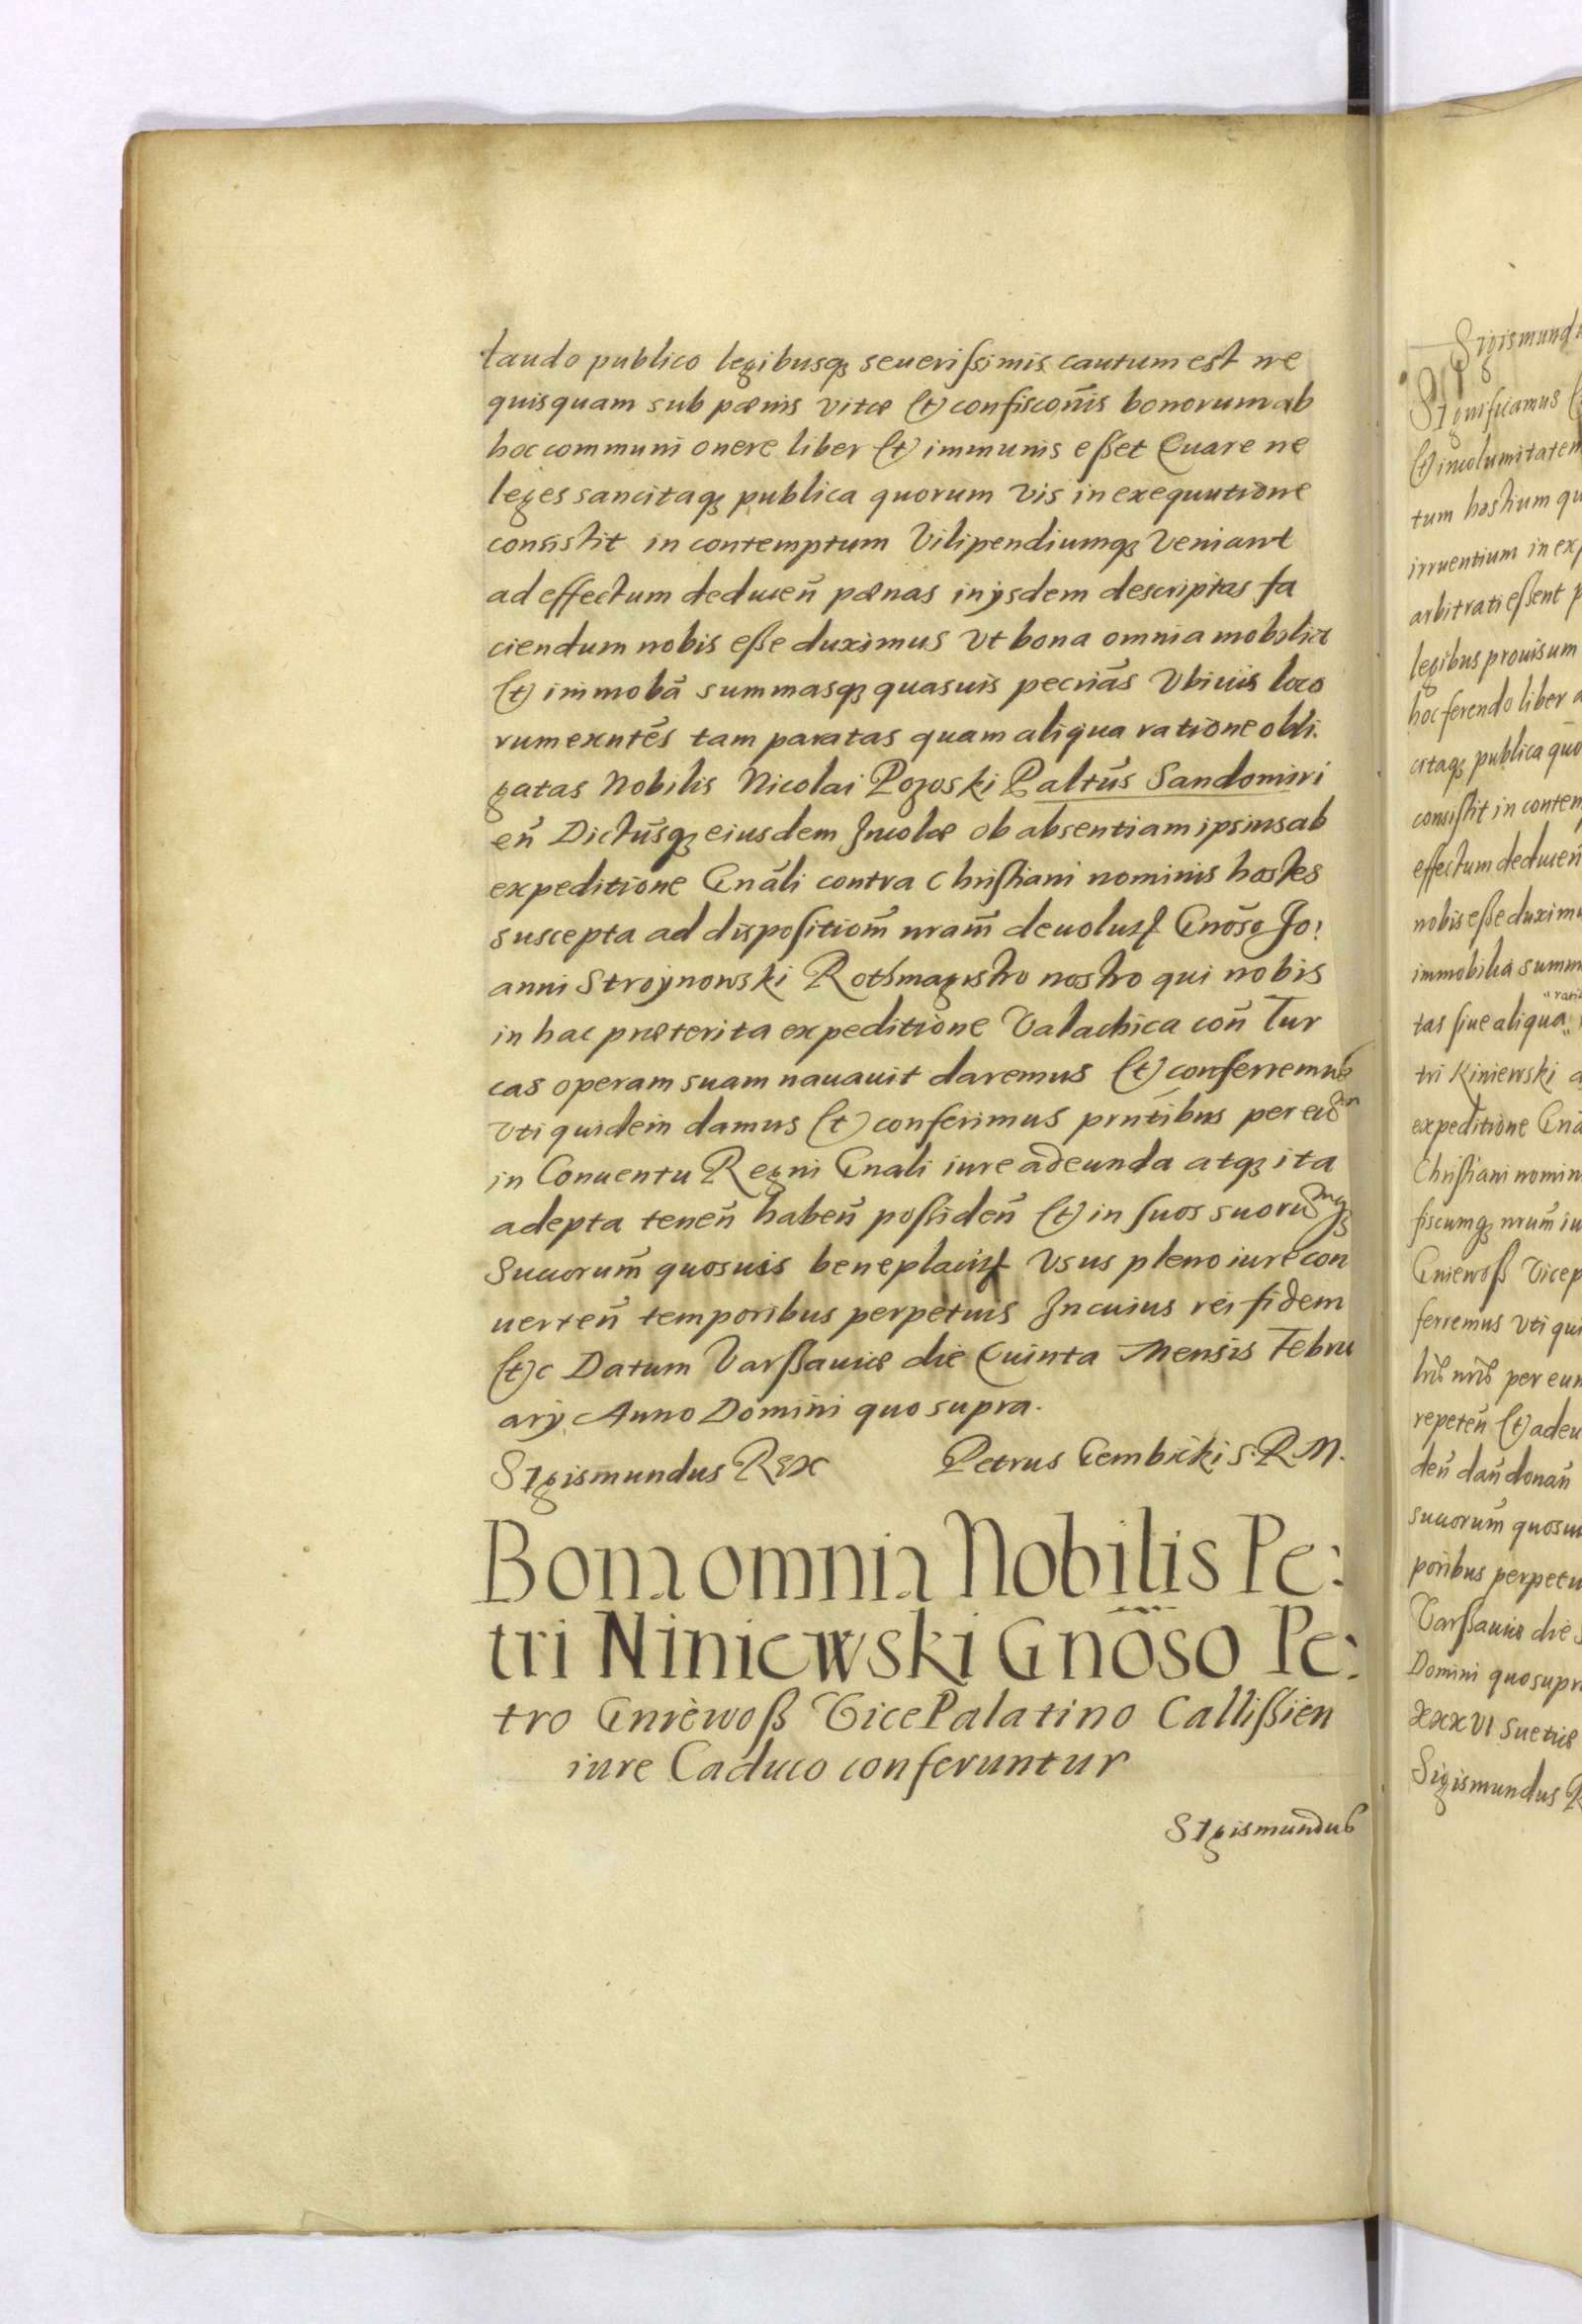 laudo publico legibusqꝫ seuerißimis cautum est ne
quisquam sub pœnis vitæ et confisconis̃ bonorum ab
hoc communi onere liber et immunis eßet Quare ne
leges sancitaqꝫ publica quorum vis in exequutione
consistit in contemptum Vilipendiumqꝫ Veniant
ad effectum deducen̄ pœnas in ijsdem descriptas fa
ciendum nobis eße duximus Vt bona omnia mobilia
et immobā summasqꝫ quasuis pecniās Vbiuis loco
rum exntēs tam paratas quam aliqua ratione obli.
gatas Nobilis Nicolai Pogoski Paltūs Sandomiri
en̄ Dictūsqꝫ eiusdem Incolæ ob absentiam ipsius ab
expeditione Gnāli contra Christiani nominis hostes
suscepta ad dispositiom̄ nram̄ deuoluta Gnōso Jo:
anni Stroynowski Rothmagistro nostro qui nobis
in hac præterita expeditione Valachica con̄ Tur
cas operam suam nauauit daremus et conferremus
Vti quidem damus et conferimus prntībus per eum
in Conuentu Regni Gnali iure adeunda atqꝫ ita
adepta tenen̄ haben̄ poßiden̄ et in suos suorumqꝫ
Succorum̄ quosuis beneplacita Vsus pleno iure con
uerten̄ temporibus perpetuis In cuius rei fidem
etc Datum Varßauiæ die Quinta Mensis Febru
arij Anno Domini quo supra.
Sigismundus Rex Petrus Gembicki S. R. M.
Bona omnia Nobilis Pe:
tri Niniewski Gnōso Pe:
tro Gniewoß Vice Palatino Callißien
iure Caduco conferuntur
Sigismundus
Sigismund
Significamus
et incolumitatem
tum hostium qu
irruentium in exp
arbitrati eßent p
legibus prouisum
hoc ferendo liber a
citaqꝫ publica quo
consistit in contem
effectum deducen̄
nobis eße duximu
immobilia summ
ratio
tas siue aliqua
tri Kiniewski a
expeditione Gnā
Christiani nomin
fiscumqꝫ nrum̄ iu
Gniewoß Vicep
ferremus Vti qui
lrīs nrīs per eum
repeten̄ et adeu
den̄ dan̄ donan̄
succorum̄ quosui
poribus perpetu
Varßauiæ die S
Domini quo supra
XXXVI Suetiæ
Sigismundus R